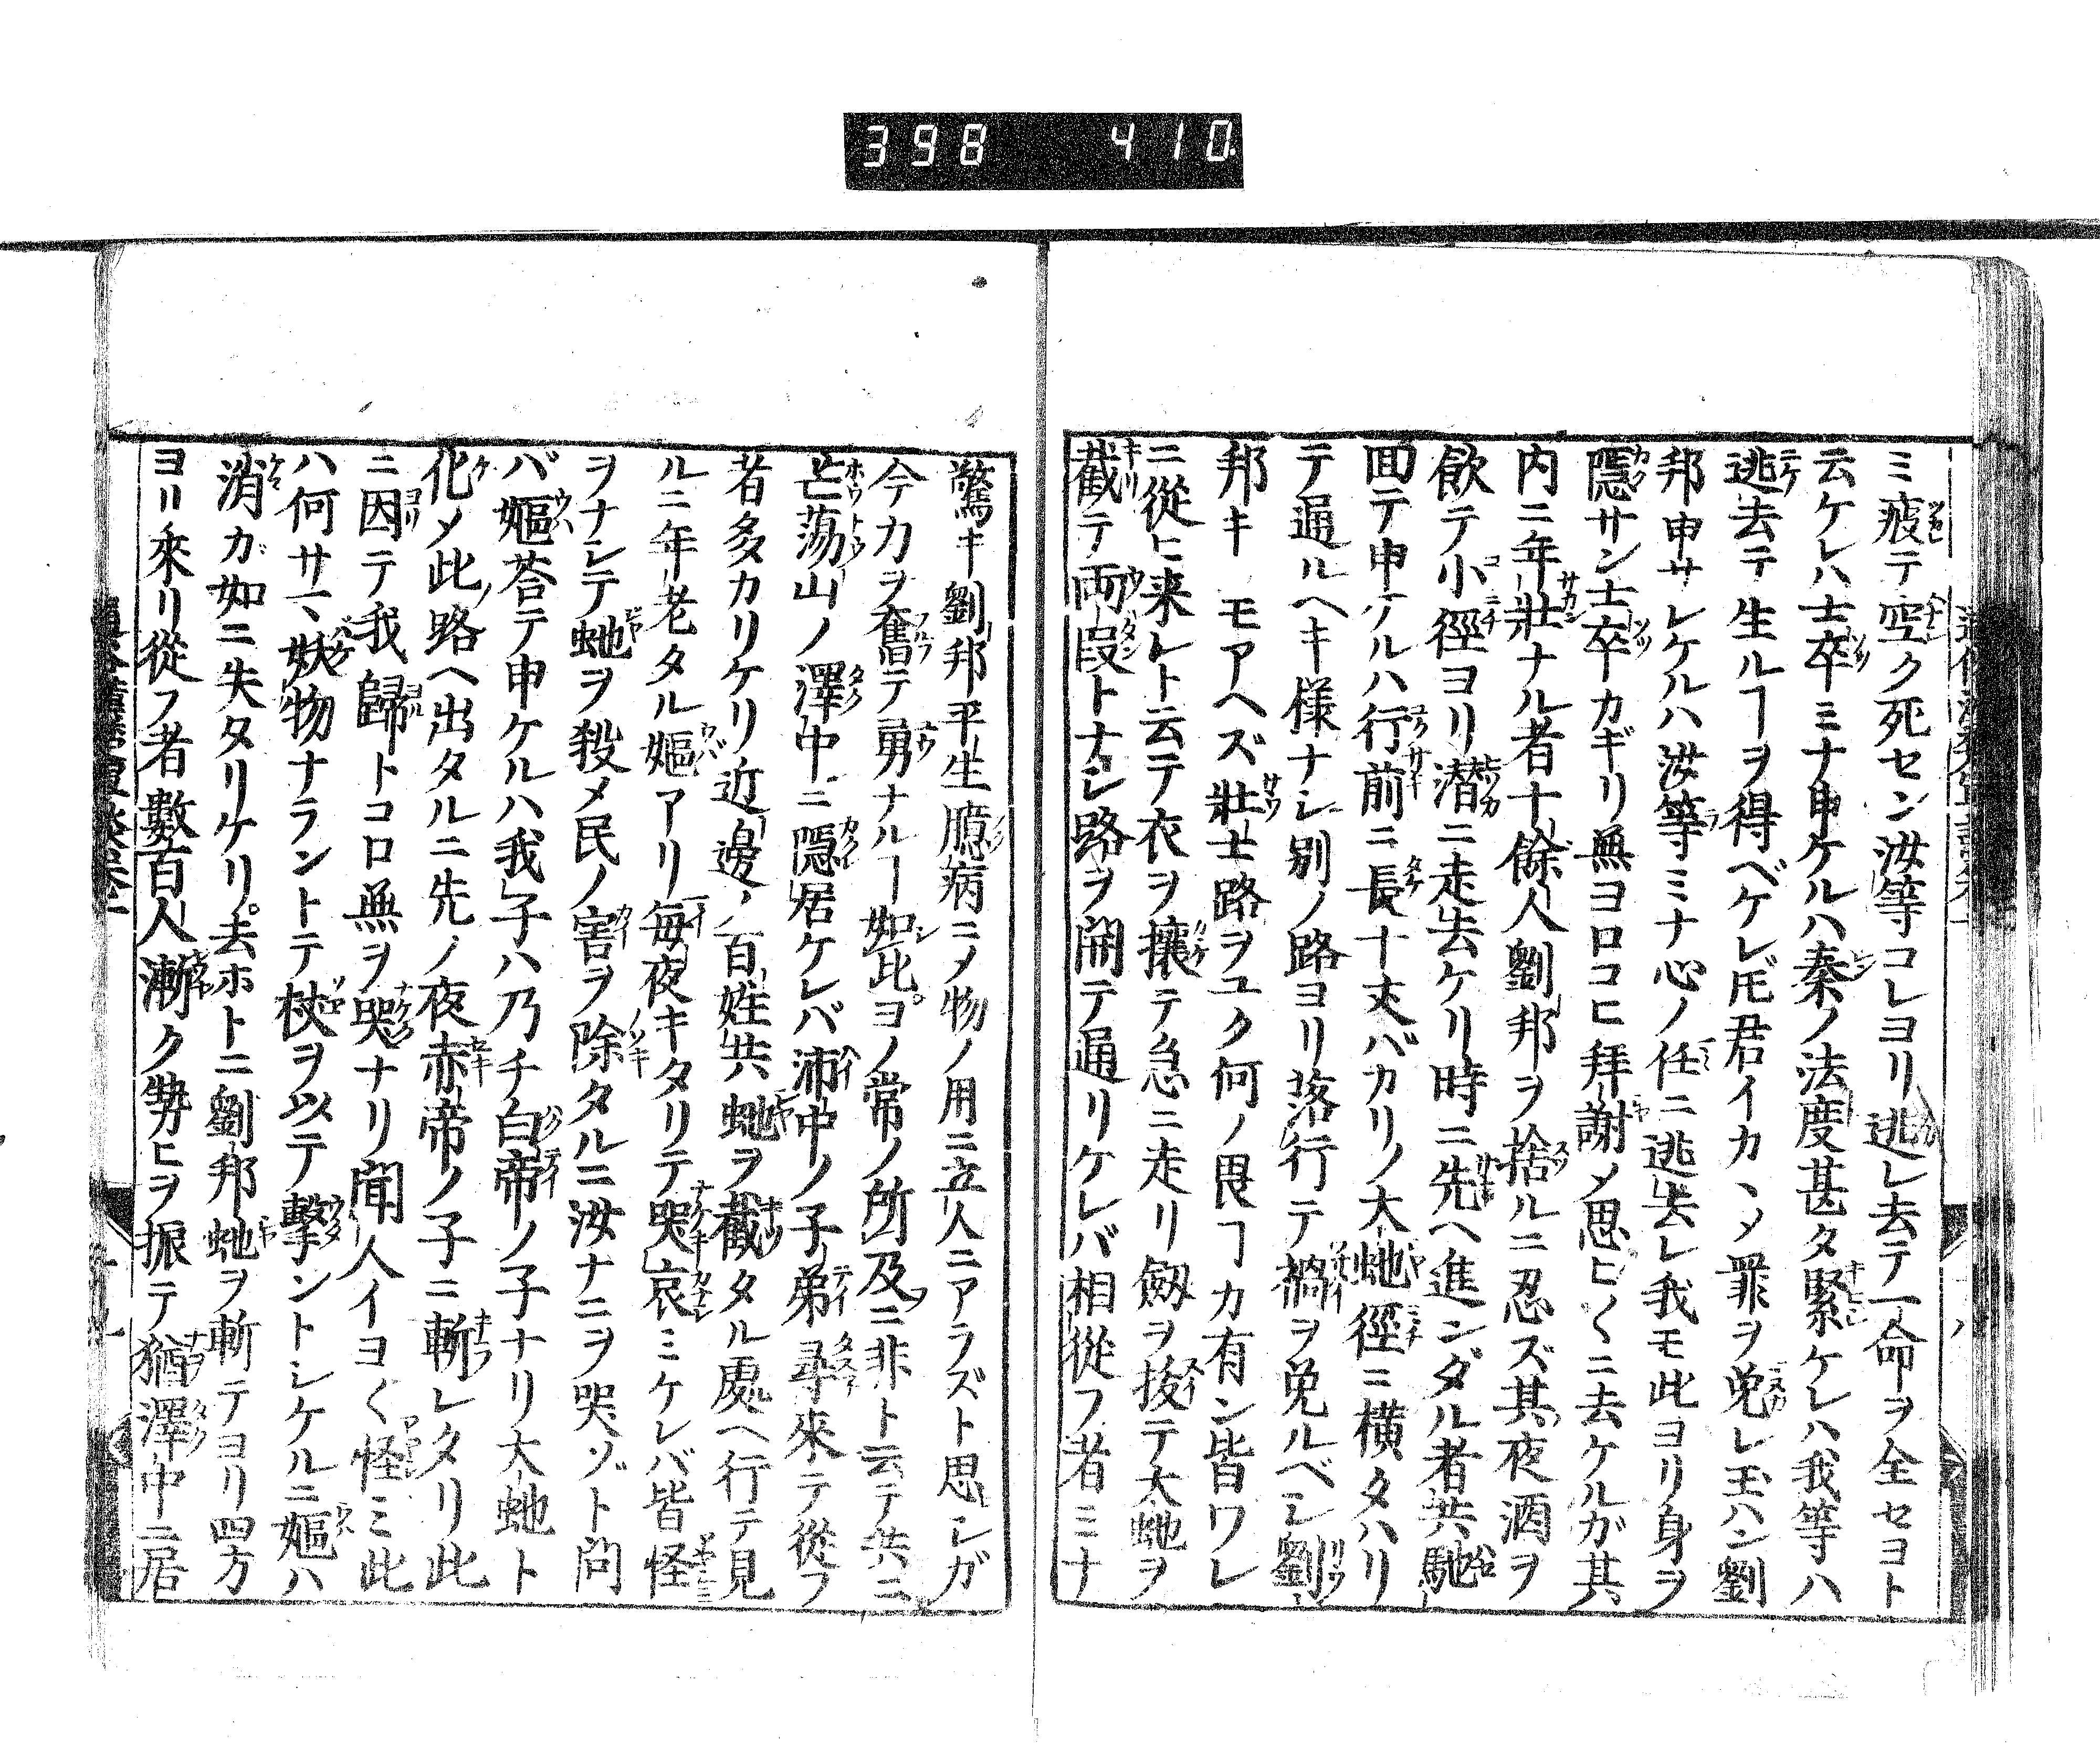 398 410
ミ疲テ空ク死セン汝等コレヨリ逃レ去テ一命ヲ全セヨト
云ケレハ士卒ミナ申ケルハ秦ノ法度甚タ緊ケレハ我等ハ
逃去テ生ルヿヲ得ベケレ𪜈君イカヽメ罪ヲ免レ玉ハン劉
邦申サレケルハ汝等ミナ心ノ任ニ逃去レ我モ此ヨリ身ヲ
隱サン士卒カギリ無ヨロコヒ拜謝メ思ヒ〱ニ去ケルガ其
内ニ年壯ナル者十餘人劉邦ヲ捨ルニ忍ズ其夜酒ヲ
飮テ小徑ヨリ潜ニ走去ケリ時ニ先ヘ進ンダル者共馳
囬テ申ケルハ行前ニ長十丈バカリノ大虵徑ニ横タハリ
テ通ルヘキ様ナシ別ノ路ヨリ落行テ禍ヲ免ルベシ劉
邦キモアヘズ壯士路ヲユク何ノ畏ヿカ有ン皆ワレ
ニ從ヒ来レト云テ衣ヲ攘テ急ニ走リ劔ヲ拔テ大虵ヲ
截テ両段トナシ路ヲ開テ通リケレバ相從フ者ミナ
驚キ劉邦平生臆病ニメ物ノ用ニ立人ニアラズト思シガ
今力ヲ奮テ勇ナルヿ如此ヨノ常ノ所及ニ非ト云テ共ニ
芒蕩山ノ澤中ニ隱居ケレバ沛中ノ子弟尋來テ從フ
者多カリケリ近邊ノ百姓共虵ヲ截タル處ヘ行テ見
ルニ年老タル嫗アリ毎夜キタリテ哭哀ミケレバ皆怪
ヲナシテ虵ヲ殺メ民ノ害ヲ除タルニ汝ナニヲ哭ゾト問
バ嫗荅テ申ケルハ我子ハ乃チ白帝ノ子ナリ大虵ト
化メ此路ヘ出タルニ先ノ夜赤帝ノ子ニ斬レタリ此
ニ因テ我歸トコロ無ヲ哭ナリ聞人イヨ〱怪ミ此
ハ何サマ妖物ナラントテ杖ヲ以テ擊ントシケルニ嫗ハ
消カ如ニ失タリケリ去ホトニ劉邦虵ヲ斬テヨリ四方
ヨリ來リ從フ者數百人漸ク勢ヒヲ振テ猶澤中ニ居